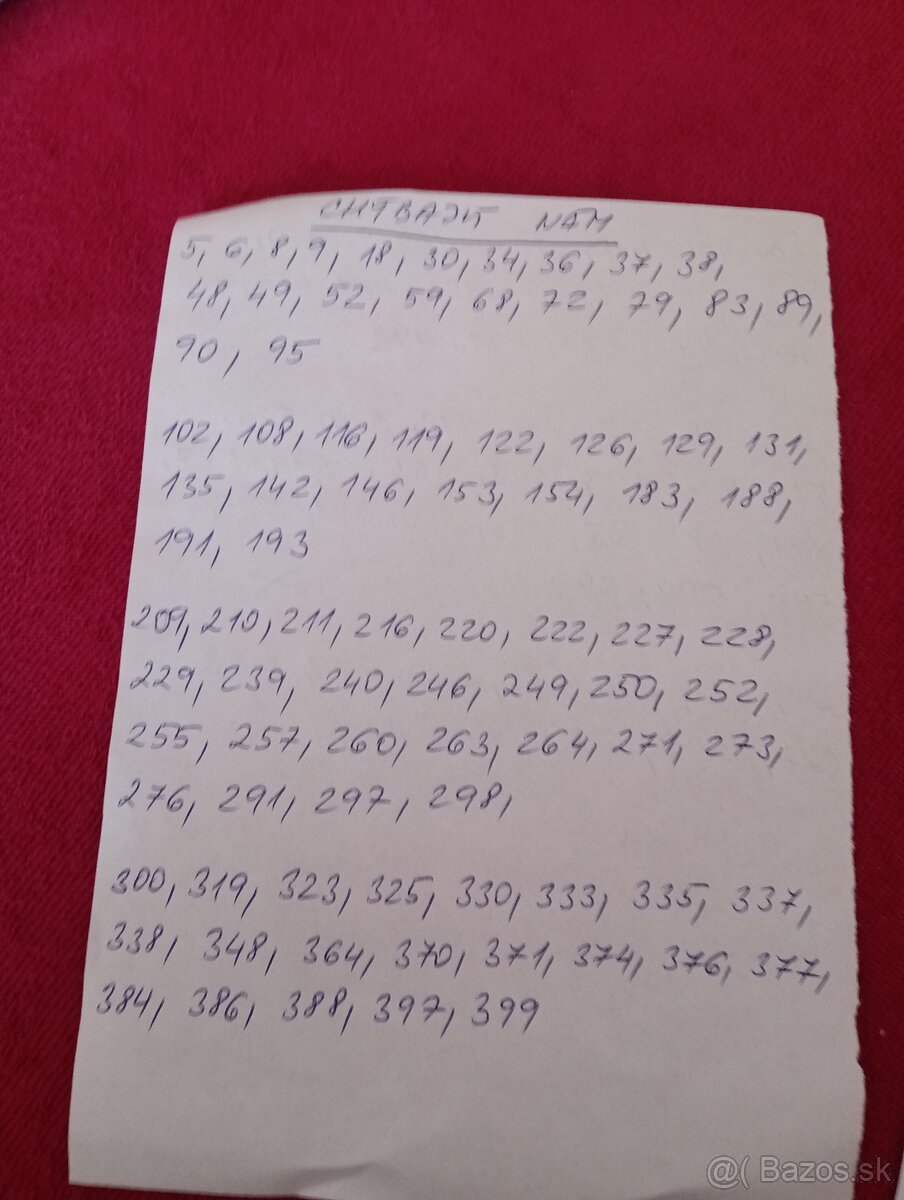 CHÝBAJÚ NÁM
5, 6, 8, 9, 18, 30, 34, 36, 37, 38,
48, 49, 52, 59, 68, 72, 79, 83, 89,
90, 95
102, 108, 116, 119, 122, 126, 129, 131,
135, 142, 146, 153, 154, 183, 188,
191, 193
209, 210, 211, 216, 220, 222, 227, 228,
229, 239, 240, 246, 249, 250, 252,
255, 257, 260, 263, 264, 271, 273,
276, 291, 297, 298,
300, 319, 323, 325, 330, 333, 335, 337,
338, 348, 364, 370, 371, 374, 376, 377,
384, 386, 388, 397, 399
@( Bazos.sk